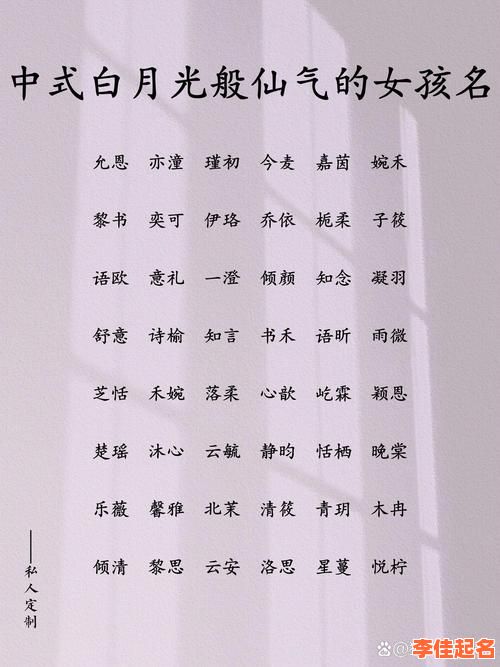 中式白月光般仙气的女孩名
允恩 亦潼 瑾初 今麦 嘉茵 婉禾
黎书 奕可 伊珞 乔依 栀柔 子筱
语欧 意礼 一澄 倾颜 知念 凝羽
舒意 诗榆 知言 书禾 语昕 雨微
芝恬 禾婉 落柔 心歆 屹霖 颖恩
楚瑶 沐心 云毓 静昀 恬栖 晚棠
乐薇 馨雅 北茉 清筱 青玥 木冉
倾清 黎思 云安 洛思 星蔓 悦柠
——私人定制
李佳起名